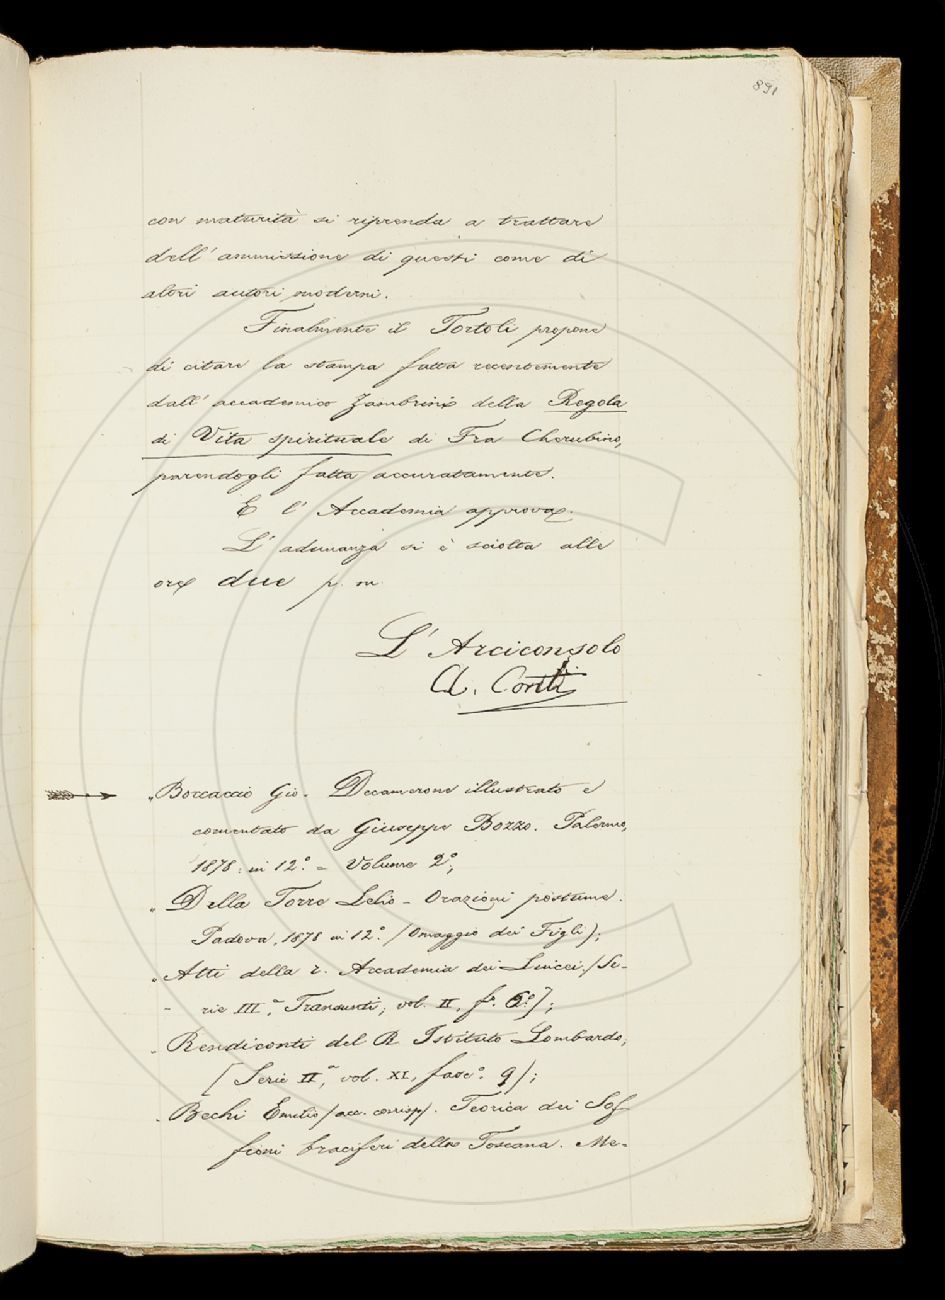 891
con maturità si riprenda a trattare
dell' ammissione di questi come di
altri autori moderni.
Finalmente il Tortoli propone
di citare la stampa fatta recentemente
dall' accademico Zambrini della Regola
di Vita spirituale di Fra Cherubino,
parendogli fatta accuratamente.
E l' Accademia approva.
L' adunanza si è sciolta alle
ore due p. m.
L' Arciconsolo
A. Conti
Boccaccio Gio. Decamerone illustrato e
comentato da Giuseppe Bozzo. Palermo,
1878: in 12.° = Volume 2°;
Della Torre Lelio - Orazioni postume.
Padova, 1878 in 12.° (Omaggio dei Figli);
Atti della r. Accademia dei Lincei; (Se-
rie III.ª, Transunti, vol. II, f.° 6.°);
Rendiconti del R. Istituto Lombardo;
(Serie IIª, vol. XI, fasc°. 9);
Bechi Emilio (acc. corrisp). Teorica dei Sof-
fioni boraciferi della Toscana. Me-